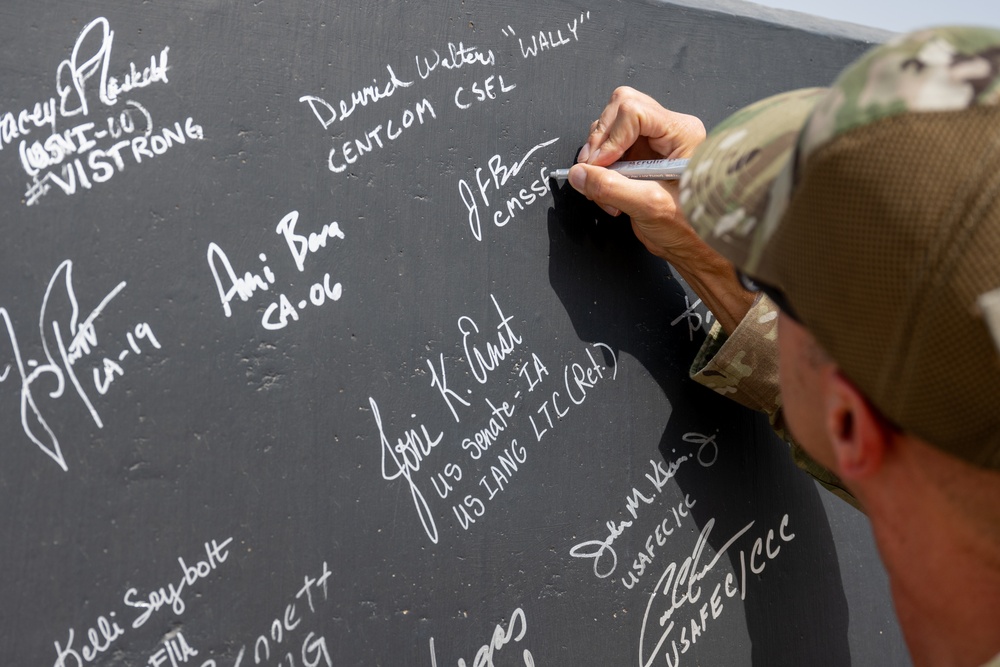 Stacey E Plaskett
(USVI-00)
#VISTRONG
Derrick Walters "WALLY"
CENTCOM CSEL
JFB
CMSSF
Ami Bera
CA-06
CA-19
Joni K. Ernst
US Senate - IA
US IANG LTC (Ret.)
John M. Klein. J
USAFEC/CC
USAFEC/CCC
Kelli Seybolt